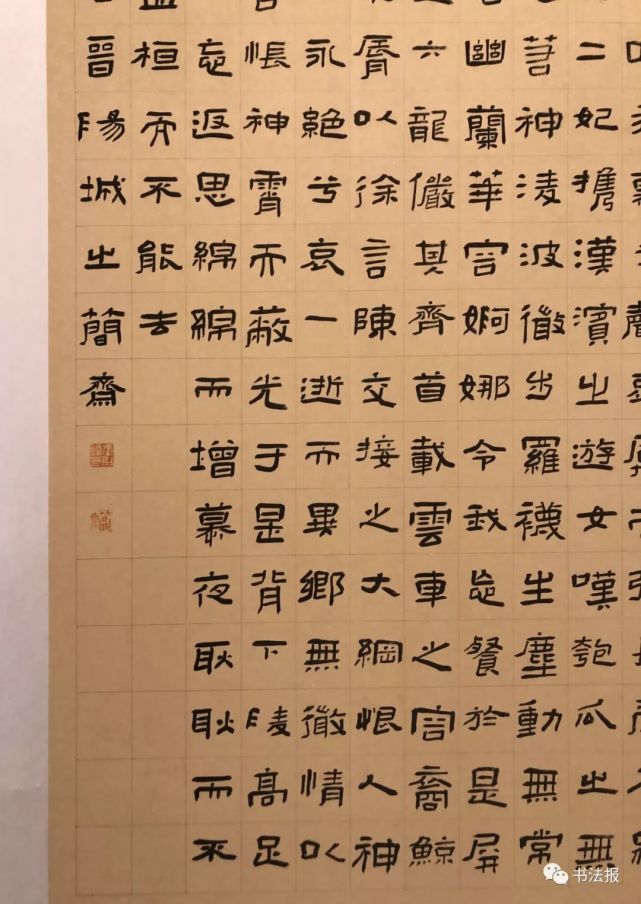 二妃攜漢濱之遊女嘆匏瓜之無
若神淩波微步羅襪生塵動無常
幽蘭華容婀娜令我忘餐於是屏
六龍儼其齊首載雲車之容裔鯨
脣以徐言陳交接之大綱恨人神
永絕兮哀一逝而異鄉無微情以
悵神霄而蔽光于是背下陵高足
忘返思綿綿而增慕夜耿耿而不
桓而不能去
晉陽城之簡齋
书法报